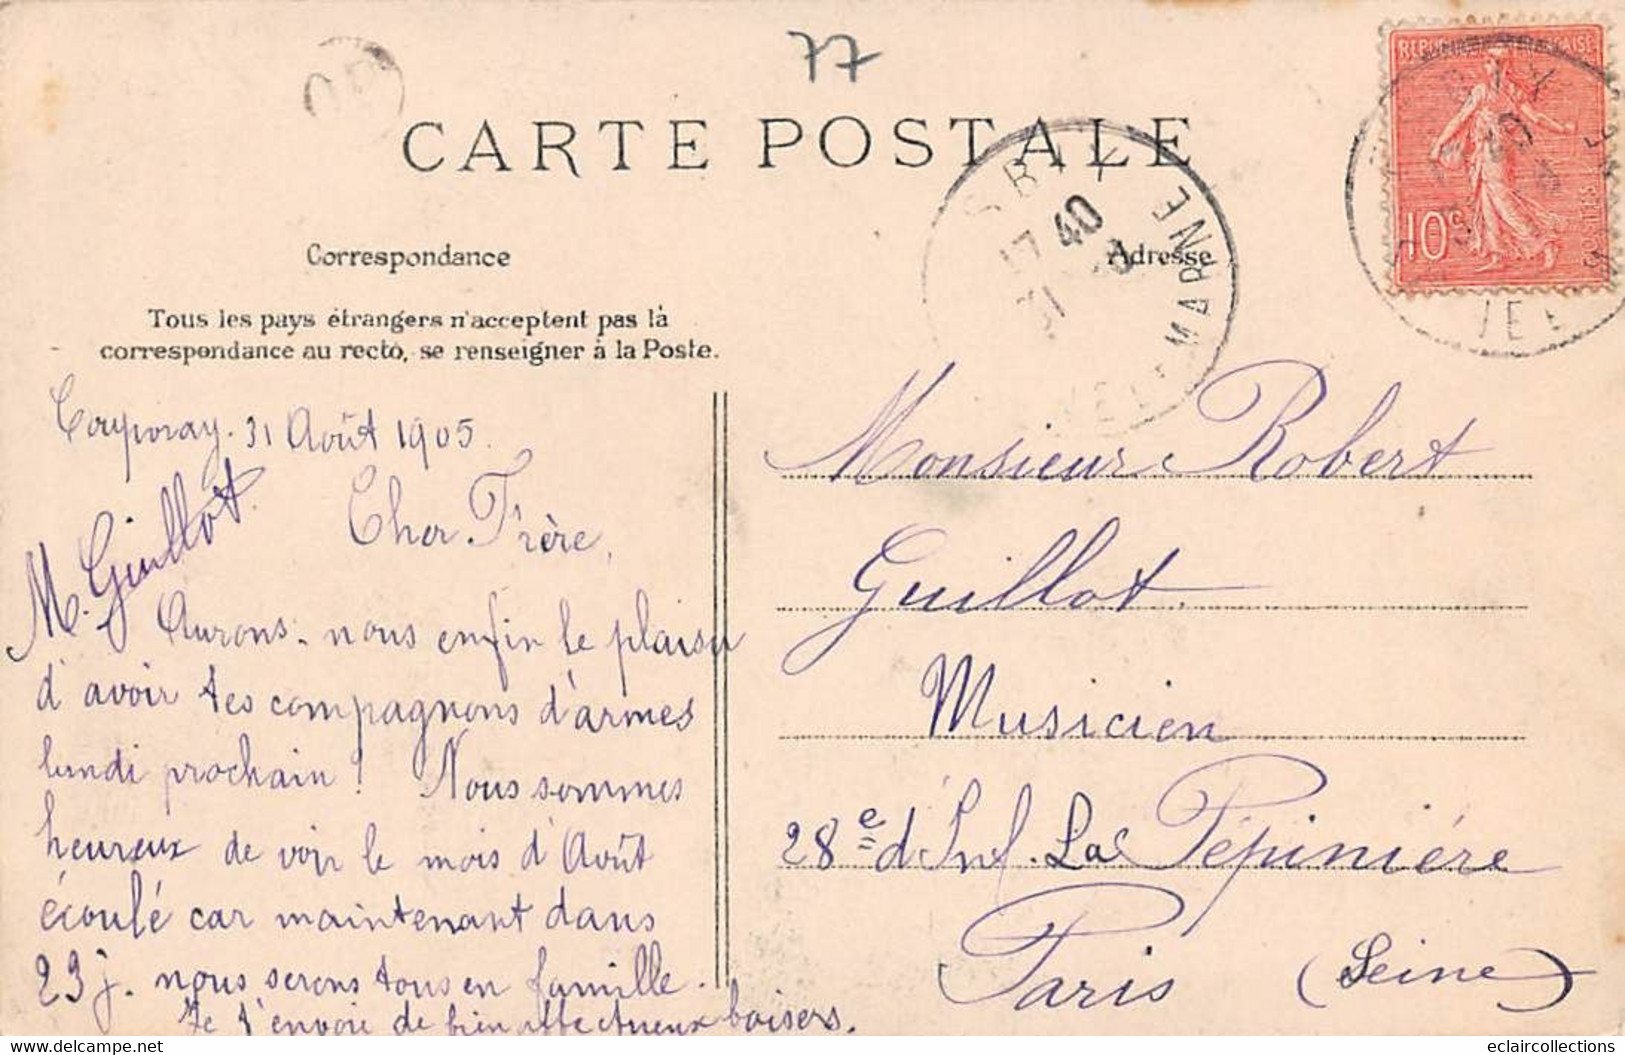 77
CARTE POSTALE
RÉPUBLIQUE FRANÇAISE
10c
POSTES
17 40
31
ET-MARNE
Correspondance
Adresse
Tous les pays étrangers n'acceptent pas là
correspondance au recto, se renseigner à la Poste.
Coupvray. 31 Août 1905.
M. Guillot.
Cher Frère,
Aurons-nous enfin le plaisir
d'avoir tes compagnons d'armes
lundi prochain! Nous sommes
heureux de voir le mois d'Août
écoulé car maintenant dans
23 j. nous serons tous en famille.
Je t'envoie de bien affectueux baisers.
Monsieur Robert
Guillot
Musicien
28e d'Inf. La Pépinière
Paris (Seine)
eclaircollections.delcampe.net